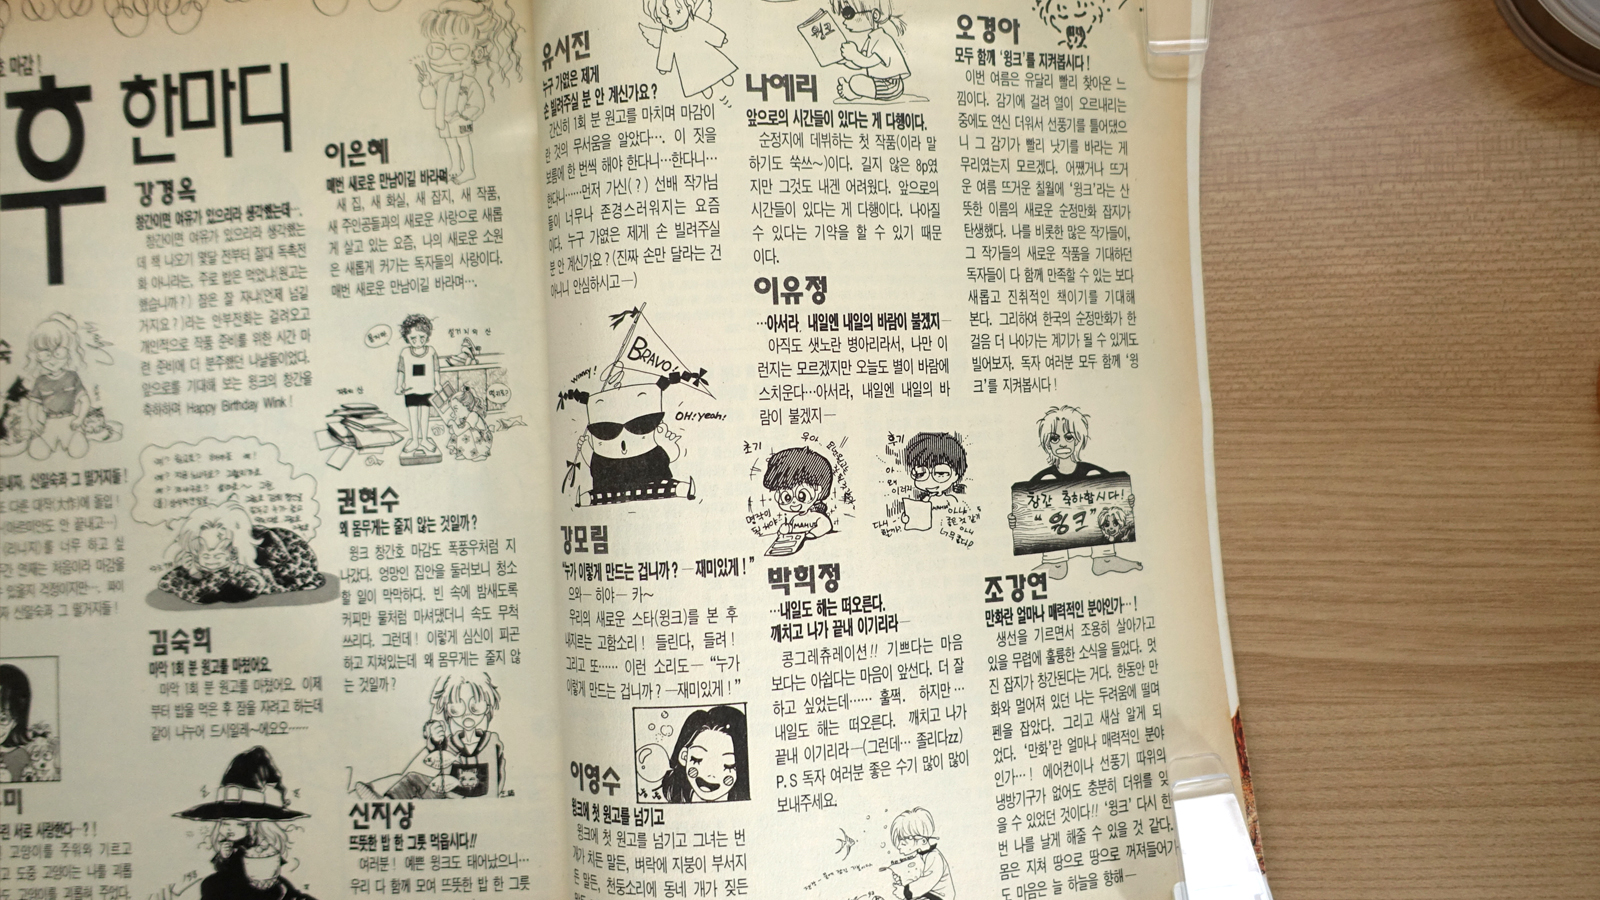 후 한마디
강경옥
창간이면 여유가 있으리라 생각했는데….
창간이면 여유가 있으리라 생각했는
데 책 나오기 몇달 전부터 절대 독촉전
화 아니라는, 주로 밥은 먹었냐(원고는
했습니까?) 잠은 잘 자냐(언제 넘길
거지요?)라는 안부전화는 걸려오고
개인적으로 작품 준비를 위한 시간 마
련 준비에 더 분주했던 나날들이었다.
앞으로를 기대해 보는 윙크의 창간을
축하하며 Happy Birthday Wink!
김숙희
마악 1회 분 원고를 마쳤어요.
마악 1회 분 원고를 마쳤어요. 이제
부터 밥을 먹은 후 잠을 자려고 하는데
같이 나누어 드시일레~에요오……
이은혜
매번 새로운 만남이길 바라며
새 집, 새 화실, 새 잡지, 새 작품,
새 주인공들과의 새로운 사랑으로 새롭
게 살고 있는 요즘, 나의 새로운 소원
은 새롭게 커가는 독자들의 사랑이다.
매번 새로운 만남이길 바라며….
권현수
왜 몸무게는 줄지 않는 것일까?
윙크 창간호 마감도 폭풍우처럼 지
나갔다. 엉망인 집안을 둘러보니 청소
할 일이 막막하다. 빈 속에 밤새도록
커피만 물처럼 마셔댔더니 속도 무척
쓰리다. 그런데! 이렇게 심신이 피곤
하고 지쳐있는데 왜 몸무게는 줄지 않
는 것일까?
신지상
뜨뜻한 밥 한 그릇 먹읍시다!!
여러분! 예쁜 윙크도 태어났으니…
우리 다 함께 모여 뜨뜻한 밥 한 그릇
유시진
누구 가엾은 제게
손 빌려주실 분 안 계신가요?
간신히 1회 분 원고를 마치며 마감이
란 것의 무서움을 알았다…. 이 짓을
보름에 한 번씩 해야 한다니…한다니…
한다니……먼저 가신(?) 선배 작가님
들이 너무나 존경스러워지는 요즘
이다. 누구 가엾은 제게 손 빌려주실
분 안 계신가요? (진짜 손만 달라는 건
아니니 안심하시고—)
BRAVO!
OH! yeah!
강모림
"누가 이렇게 만드는 겁니까? — 재미있게!"
으와— 히야— 캬~
우리의 새로운 스타(윙크)를 본 후
내지르는 고함소리! 들린다, 들려!
그리고 또…… 이런 소리도— "누가
이렇게 만드는 겁니까? —재미있게!"
이영수
윙크에 첫 원고를 넘기고
윙크에 첫 원고를 넘기고 그녀는 번
개가 치든 말든, 벼락에 지붕이 부서지
든 말든, 천둥소리에 동네 개가 짖든
윙크
나예리
앞으로의 시간들이 있다는 게 다행이다.
순정지에 데뷔하는 첫 작품(이라 말
하기도 쑥쓰~)이다. 길지 않은 8p였
지만 그것도 내겐 어려웠다. 앞으로의
시간들이 있다는 게 다행이다. 나아질
수 있다는 기약을 할 수 있기 때문
이다.
이유정
…아서라, 내일엔 내일의 바람이 불겠지—
아직도 샛노란 병아리라서, 나만 이
런지는 모르겠지만 오늘도 별이 바람에
스치운다…아서라, 내일엔 내일의 바
람이 불겠지—
초기
후기
박희정
…내일도 해는 떠오른다.
깨치고 나가 끝내 이기리라—
콩그레츄레이션!! 기쁘다는 마음
보다는 아쉽다는 마음이 앞선다. 더 잘
하고 싶었는데…… 훌쩍. 하지만…
내일도 해는 떠오른다. 깨치고 나가
끝내 이기리라—(그런데… 졸리다zz)
P.S 독자 여러분 좋은 수기 많이 많이
보내주세요.
오경아
모두 함께 '윙크'를 지켜봅시다!
이번 여름은 유달리 빨리 찾아온 느
낌이다. 감기에 걸려 열이 오르내리는
중에도 연신 더워서 선풍기를 틀어댔으
니 그 감기가 빨리 낫기를 바라는 게
무리였는지 모르겠다. 어쨌거나 뜨거
운 여름 뜨거운 칠월에 '윙크'라는 산
뜻한 이름의 새로운 순정만화 잡지가
탄생했다. 나를 비롯한 많은 작가들이,
그 작가들의 새로운 작품을 기대하던
독자들이 다 함께 만족할 수 있는 보다
새롭고 진취적인 책이기를 기대해
본다. 그리하여 한국의 순정만화가 한
걸음 더 나아가는 계기가 될 수 있게도
빌어보자. 독자 여러분 모두 함께 '윙
크'를 지켜봅시다!
창간 축하합시다!
"윙크"
조강연
만화란 얼마나 매력적인 분야인가…!
생선을 기르면서 조용히 살아가고
있을 무렵에 훌륭한 소식을 들었다. 멋
진 잡지가 창간된다는 거다. 한동안 만
화와 멀어져 있던 나는 두려움에 떨며
펜을 잡았다. 그리고 새삼 알게 되
었다. '만화'란 얼마나 매력적인 분야
인가…! 에어컨이나 선풍기 따위의
냉방기구가 없어도 충분히 더위를 잊
을 수 있었던 것이다!! '윙크' 다시 한
번 나를 날게 해줄 수 있을 것 같다.
몸은 지쳐 땅으로 땅으로 꺼져들어가
도 마음은 늘 하늘을 향해—